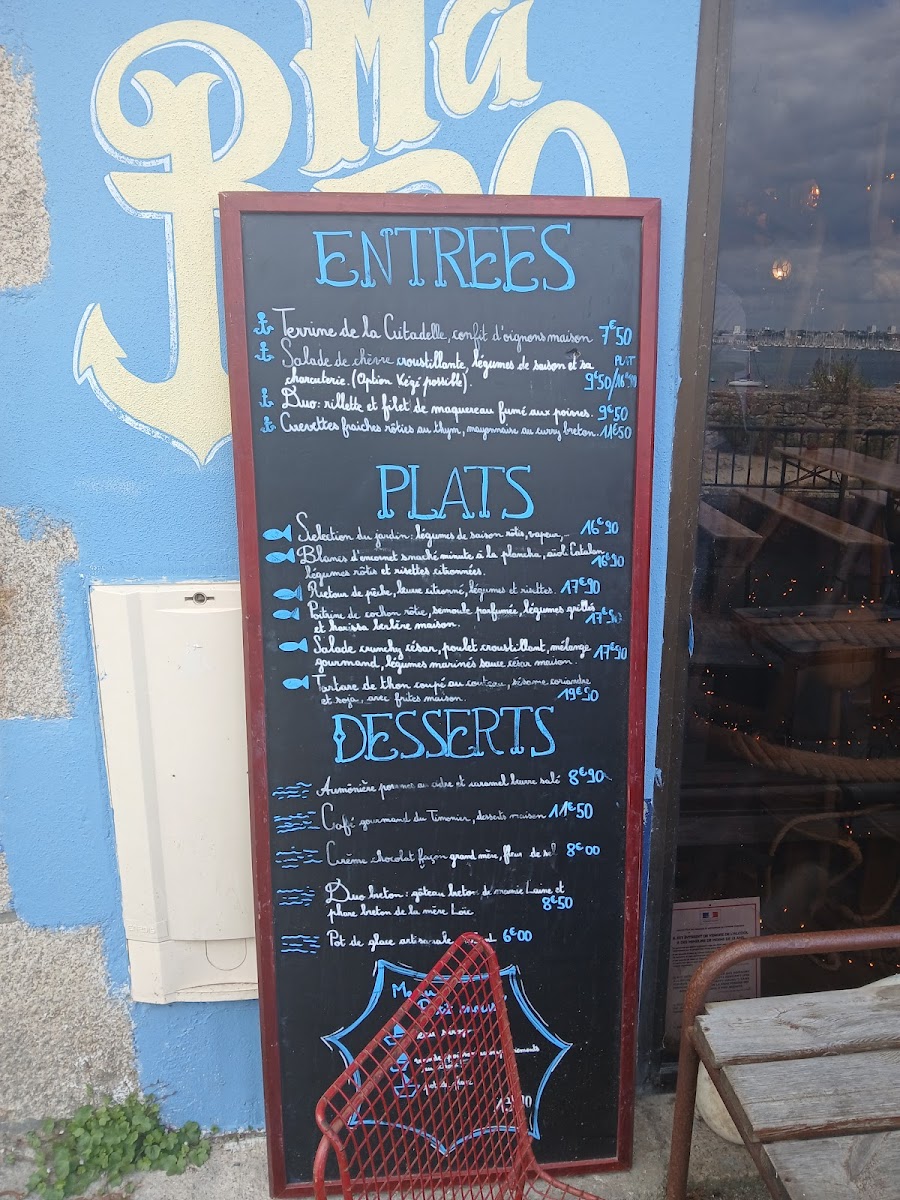 Ma
ENTREES
Terrine de la Citadelle, confit d'oignons maison 7€50
Salade de chèvre croustillante, légumes de saison et sa PLAT
charcuterie. (Option Végé possible). 9€50/16€90
Duo: rillette et filet de maquereau fumé aux poivres. 9€50
Crevettes fraiches rôties au thym, mayonnaise au curry breton. 11€50
PLATS
Selection du jardin; légumes de saison rôtis, vapeur,.. 16€90
Blancs d'encornet snacké minute à la plancha, aïoli Catalan 16€90
légumes rôtis et risettes citronnées.
Retour de pêche, beurre citronné, légumes et risettes. 17€90
Poitrine de cochon rôtie, semoule parfumée, légumes grillés
et harissa berbère maison. 17€90
Salade crunchy césar, poulet croustillant, mélange 17€90
gourmand, légumes marinés sauce césar maison.
Tartare de thon coupé au couteau, sésame coriandre
et soja, avec frites maison. 19€50
DESSERTS
Aumônière pommes au cidre et caramel beurre salé 8€90
Café gourmand du Timonier, desserts maison 11€50
Crème chocolat façon grand mère, fleur de sel 8€00
Duo breton: gâteau breton de mamie Laine et
phare breton de la mère Loïc 8€50
Pot de glace artisanale 6€00
Menu